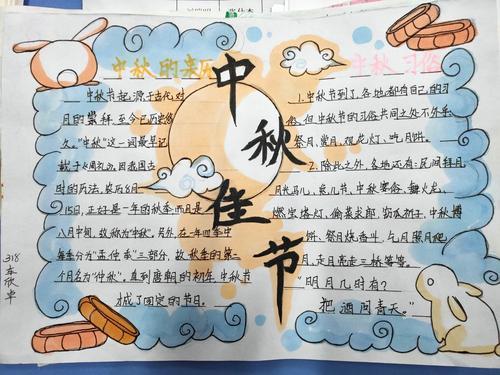 中秋的来历
中秋节起源于古代对
月的崇拜,至今已历史悠
久。"中秋"这一词最早记
载于《周礼》。因我国古
时的历法,农历8月
15日,正好是一年的秋季而且是
八月中间,故称为"中秋"。另外,在一年四季中
每季分为"孟仲季"三部分,故秋季的第二
个月名为"仲秋"。直到唐朝的初年中秋节
成了固定的节日。
中
秋
佳
节
中秋习俗
1.中秋节到了,各地都有自己的习
俗,但中秋节的习俗共同之处不外乎
祭月、赏月、观花灯、吃月饼。
2.除此之外,各地还有:民间拜月
月光马儿、兔儿节、中秋宴俗、舞火龙、
燃宝塔灯、偷菜求郎、窃瓜祈子、中秋博
饼、祭月烧香斗、乞月照月爬
月、走月亮走三桥等等。
"明月几时有?
把酒问青天。"
318